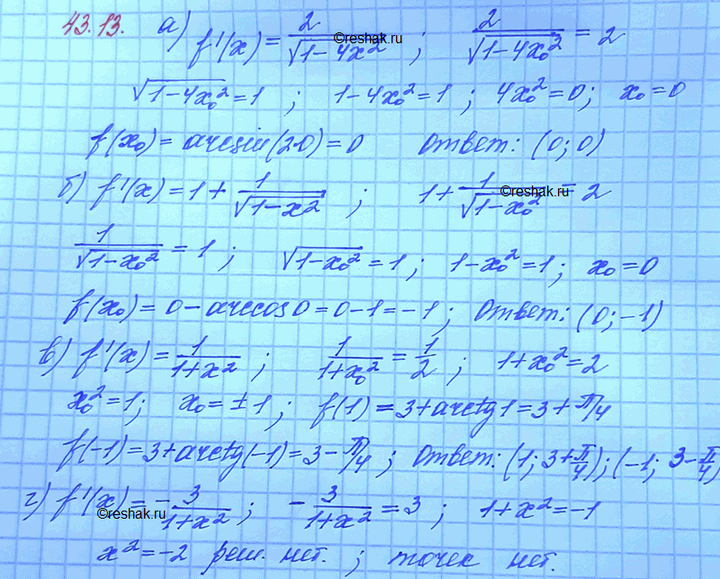 43.13. а) f'(x) = 2/√(1-4x²) ; 2/√(1-4x₀²) = 2
√(1-4x₀²) = 1 ; 1-4x₀² = 1 ; 4x₀² = 0; x₀ = 0
f(x₀) = arcsin(2·0) = 0 Ответ: (0; 0)
б) f'(x) = 1 + 1/√(1-x²) ; 1 + 1/√(1-x₀²) = 2
1/√(1-x₀²) = 1 ; √(1-x₀²) = 1 ; 1-x₀² = 1; x₀ = 0
f(x₀) = 0 - arccos 0 = 0-1 = -1 ; Ответ: (0; -1)
в) f'(x) = 1/(1+x²) ; 1/(1+x₀²) = 1/2 ; 1+x₀² = 2
x₀² = 1; x₀ = ±1 ; f(1) = 3 + arctg 1 = 3 + π/4
f(-1) = 3 + arctg(-1) = 3 - π/4 ; Ответ: (1; 3+π/4); (-1; 3-π/4
г) f'(x) = - 3/(1+x²) ; - 3/(1+x²) = 3 ; 1+x² = -1
x² = -2 реш. нет. ; точек нет.
©reshak.ru
©reshak.ru
©reshak.ru